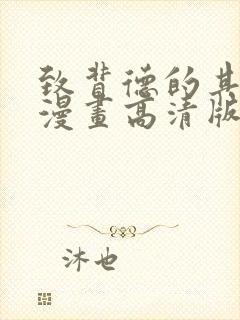 致背德的其
漫畫高清版
沐也